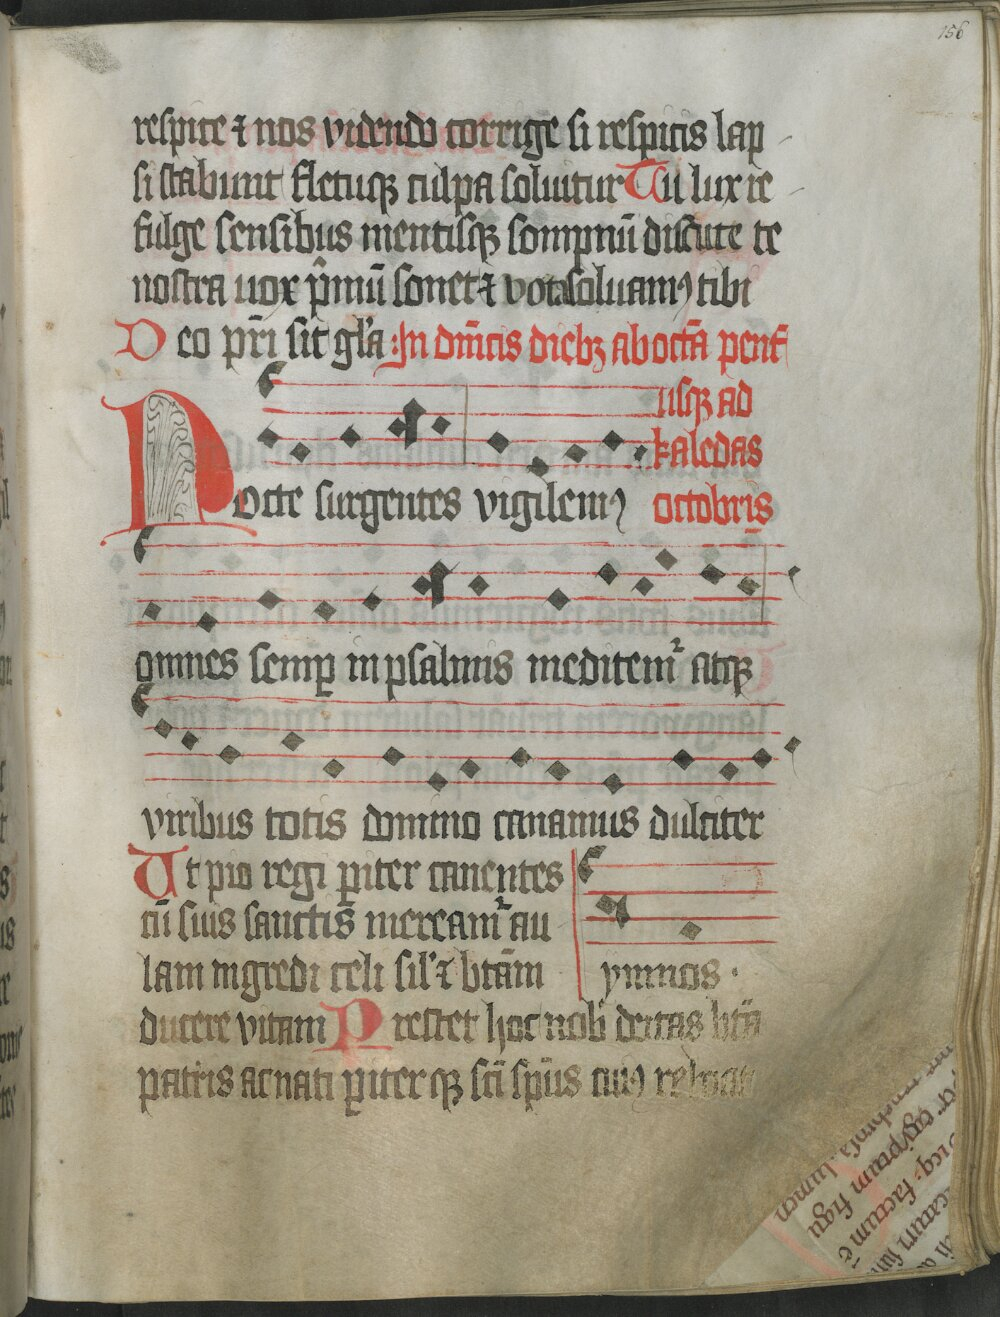 156
respice ⁊ nos videndo corrige si respicis lap
si stabunt fletusqꝫ culpa soluitur Tu lux re
fulge sensibus mentisqꝫ sompnū discute te
nostra uox p̄mū sonet ⁊ vota soluamꝰ tibi
Deo pr̄i sit gl'a In dn̄icis diebꝫ ab octa penť
usqꝫ ad
kalēdas
octobris
Nocte surgentes vigilemꝰ
omnes semꝑ in psalmis meditemur atqꝫ
viribus totis domino canamus dulciter
Ut pio regi ꝑiter canentes
cū suis sanctis mereamur au
lam ingredi celi sil' ⁊ btām
ymnos ·
ducere vitam Prestet hoc nob̄ deitas btā
patris ac nati ꝑiterqꝫ sc̄i sp̄us cuiꝰ reboat
lumen
egyptum figu
factum